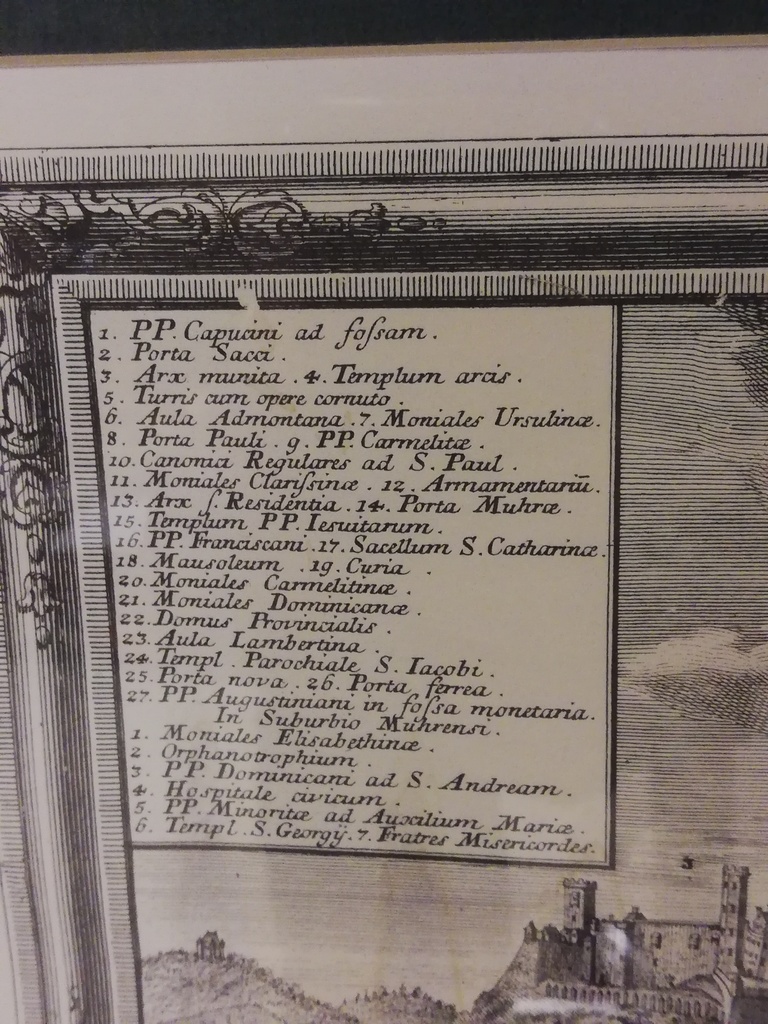 1. PP. Capucini ad foſsam.
2. Porta Sacci.
3. Arx munita. 4. Templum arcis.
5. Turris cum opere cornuto.
6. Aula Admontana. 7. Moniales Ursulinæ.
8. Porta Pauli. 9. PP. Carmelitæ.
10. Canonici Regulares ad S. Paul.
11. Moniales Clariſsinæ. 12. Armamentariū.
13. Arx ſ. Residentia. 14. Porta Muhræ.
15. Templum PP. Iesuitarum.
16. PP. Franciscani. 17. Sacellum S. Catharinæ.
18. Mausoleum. 19. Curia.
20. Moniales Carmelitinæ.
21. Moniales Dominicanæ.
22. Domus Provincialis.
23. Aula Lambertina.
24. Templ. Parochiale S. Iacobi.
25. Porta nova. 26. Porta ferrea.
27. PP. Augustiniani in foſsa monetaria.
In Suburbio Muhrensi.
1. Moniales Elisabethinæ.
2. Orphanotrophium.
3. PP. Dominicani ad S. Andream.
4. Hospitale civicum.
5. PP. Minoritæ ad Auxilium Mariæ.
6. Templ. S. Georgÿ. 7. Fratres Misericordes.
3